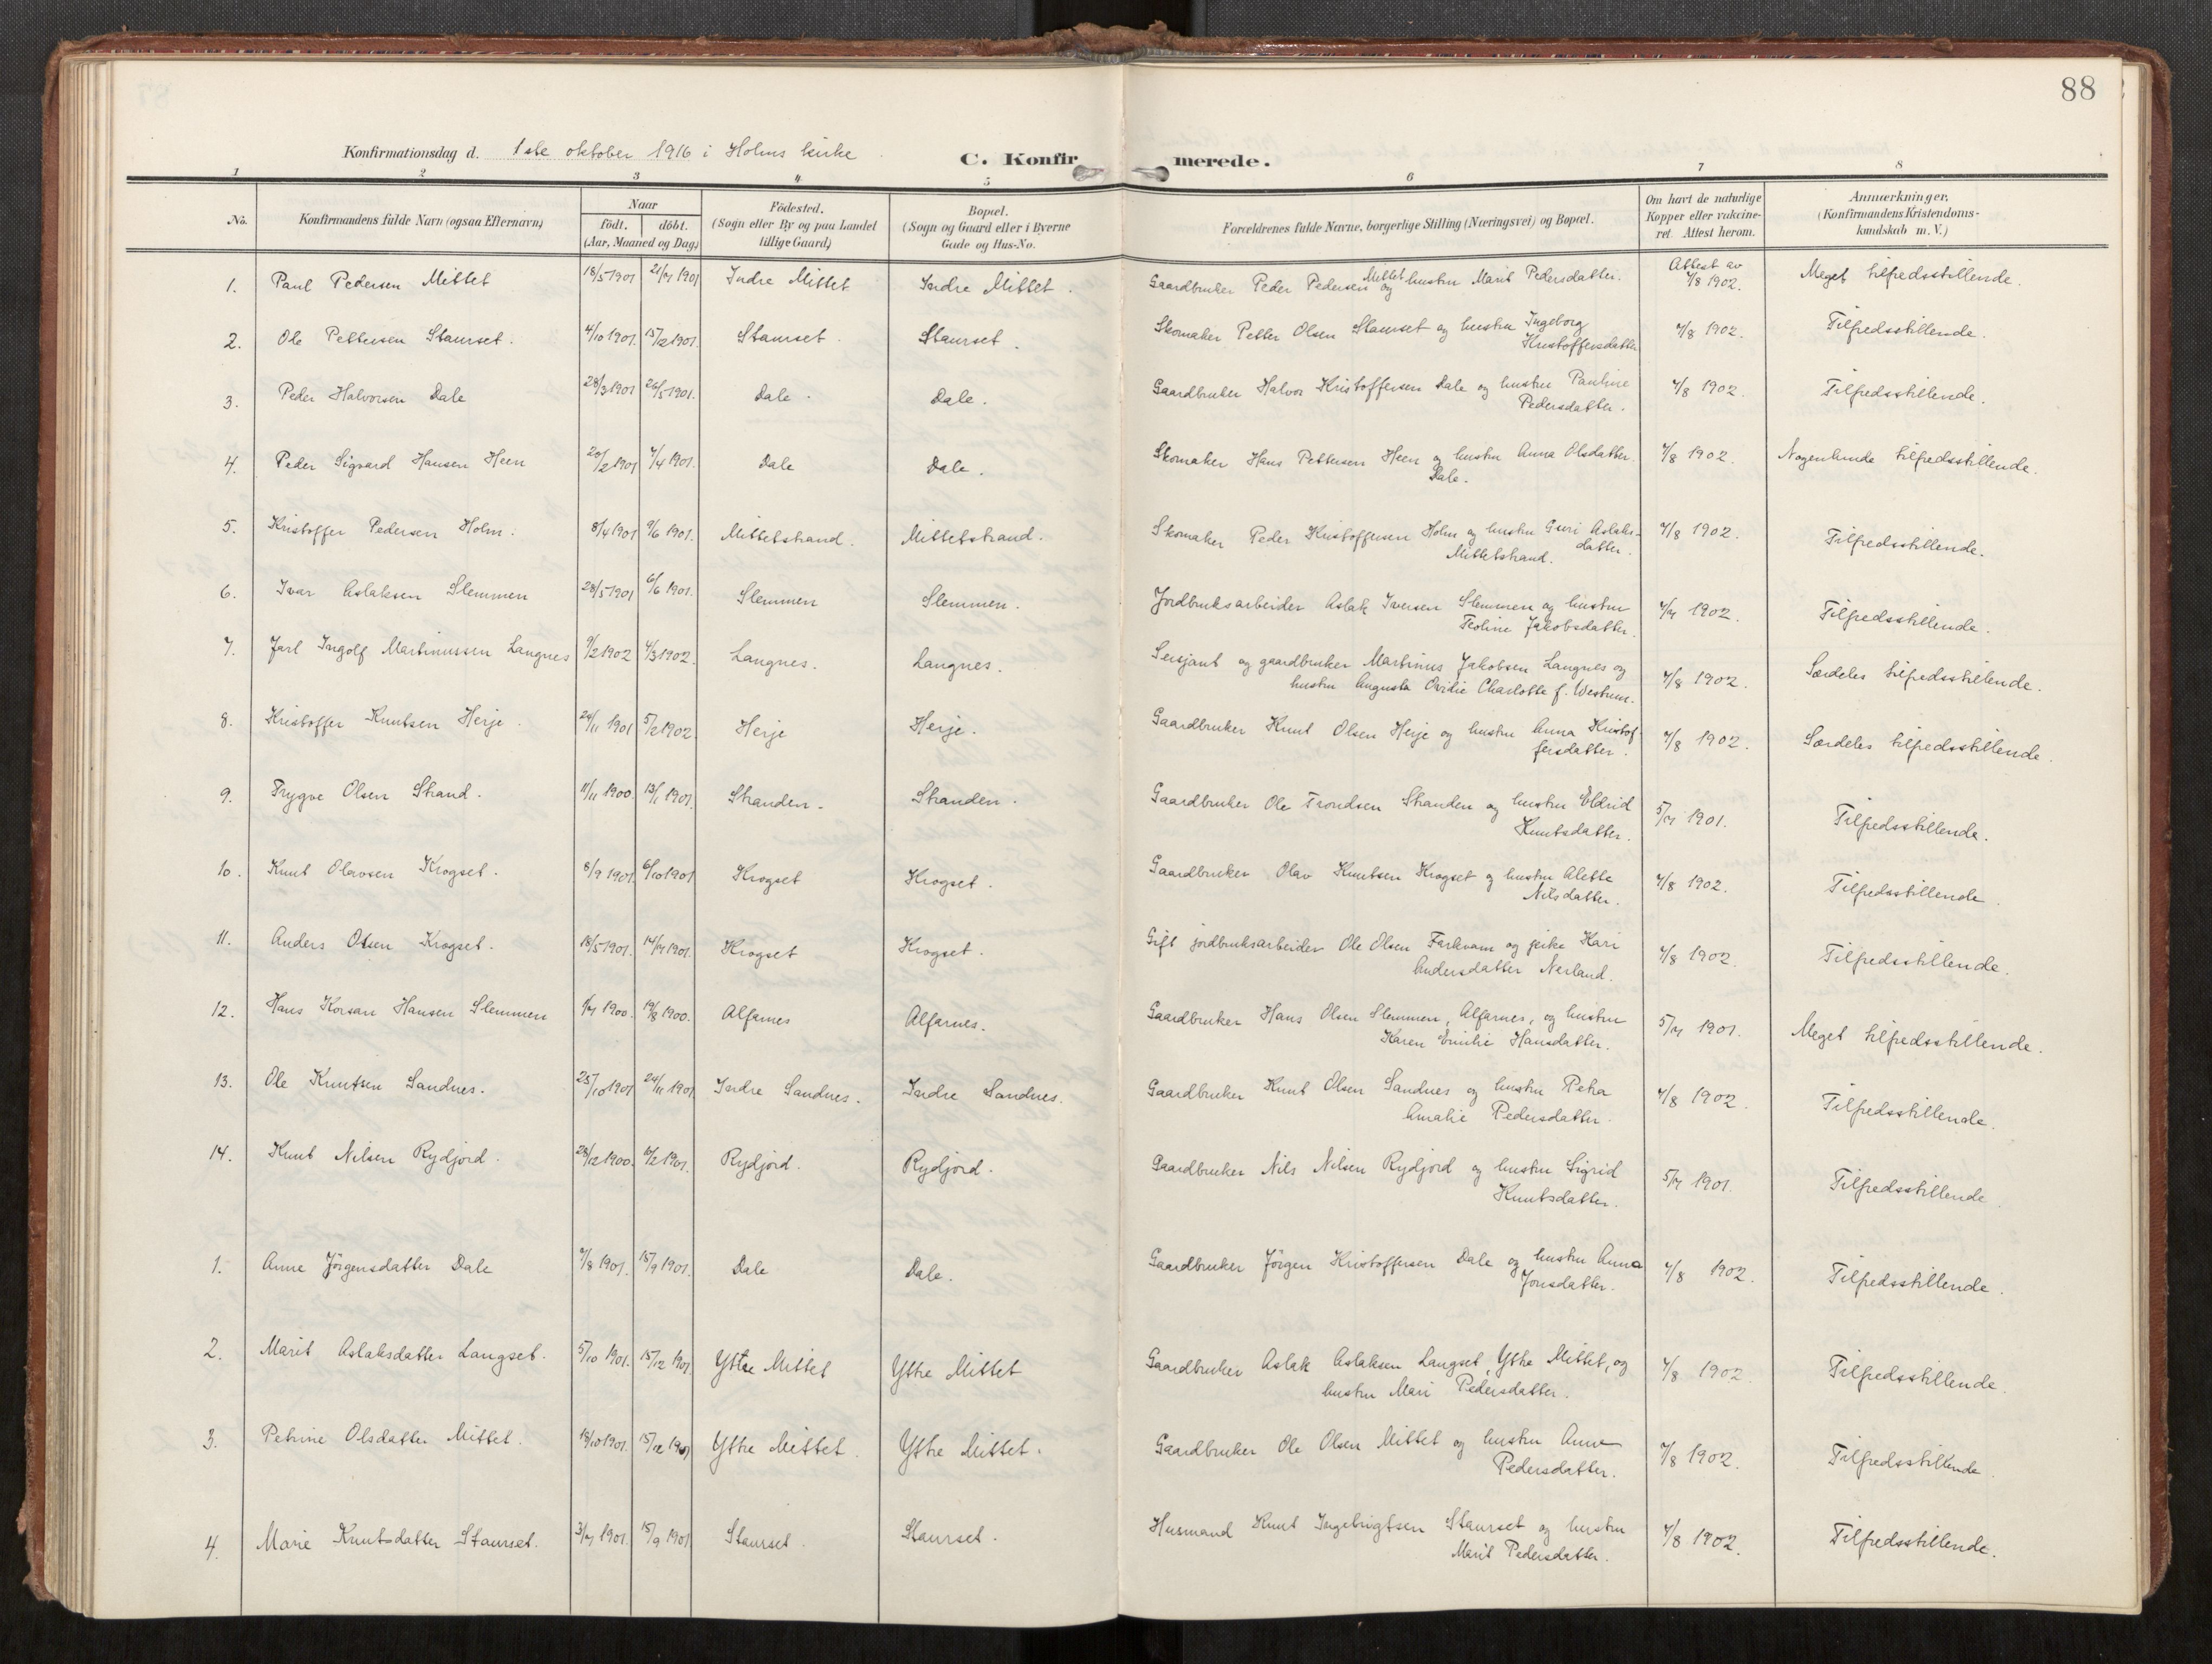 88
Konfirmationsdag d. 1ste oktober 1916 i Holms kirke
C. Konfirmerede.
1 2 3 4 5 6 7 8
No. Konfirmandens fulde Navn (ogsaa Efternavn) Naar födt. döbt. (Aar, Maaned og Dag) Födested. (Sogn eller By og paa Landet tillige Gaard) Bopæl. (Sogn og Gaard eller i Byerne Gade og Hus-No. Forældrenes fulde Navne, borgerlige Stilling (Næringsvei) og Bopæl. Om havt de naturlige Kopper eller vakcineret. Attest herom. Anmærkninger, (Konfirmandens Kristendomskundskab m. V.)
1. Paul Pedersen Mittet 18/5 1901 21/7 1901 Indre Mittet Indre Mittet. Gaardbruker Peder Pedersen Mittet og hustru Marit Pedersdatter. Attest av 7/8 1902. Meget tilfredsstillende.
2. Ole Pettersen Staurset. 4/10 1901. 15/12 1901. Staurset. Staurset. Skomaker Petter Olsen Staurset og hustru Ingeborg
Kristoffersdatter 7/8 1902. Tilfredsstillende.
3. Peder Halvorsen Dale 28/3 1901 26/5 1901. Dale. Dale. Gaardbruker Halvor Kristoffersen Dale og hustru Pauline
Pedersdatter. 7/8 1902. Tilfredsstillende.
4. Peder Sigvard Hansen Heen 20/2 1901 7/4 1901. Dale Dale. Skomaker Hans Pettersen Heen og hustru Anna Olsdatter.
Dale. 7/8 1902. Nogenlunde tilfredsstillende.
5. Kristoffer Pedersen Holm. 8/4 1901 9/6 1901. Mittetstrand. Mittetstrand. Skomaker Peder Kristoffersen Holm og hustru Guri Aslaks-
datter. Mittetstrand. 7/8 1902. Tilfredsstillende.
6. Ivar Aslaksen Slemmen 28/5 1901 6/6 1901. Slemmen Slemmen. Jordbruksarbeider Aslak Iversen Slemmen og hustru
Teoline Jakobsdatter. 7/7 1902. Tilfredsstillende.
7. Jarl Ingolf Martinussen Langnes 9/2 1902 4/3 1902. Langnes. Langnes. Sersjant og gaardbruker Martinus Jakobsen Langnes og
hustru Augusta Ovidie Charlotte f. Westrum. 7/8 1902. Særdeles tilfredsstillende.
8. Kristoffer Knutsen Herje. 24/11 1901 5/2 1902 Herje Herje. Gaardbruker Knut Olsen Herje og hustru Anna Kristof-
fersdatter. 7/8 1902. Særdeles tilfredsstillende.
9. Trygve Olsen Strand. 11/11 1900. 13/1 1901. Stranden. Stranden. Gaardbruker Ole Trondsen Stranden og hustru Eldrid
Knutsdatter. 5/7 1901. Tilfredsstillende.
10. Knut Olavsen Krogset. 8/9 1901. 6/10 1901 Krogset Krogset. Gaardbruker Olav Knutsen Krogset og hustru Alette
Nilsdatter. 7/8 1902. Tilfredsstillende.
11. Anders Olsen Krogset. 18/5 1901. 14/7 1901. Krogset Krogset. Gift jordbruksarbeider Ole Olsen Farkvam og pike Kari
Andersdatter Nerland. 7/8 1902. Tilfredsstillende.
12. Hans Korsan Hansen Slemmen 1/7 1900. 19/8 1900. Alfarnes Alfarnes. Gaardbruker Hans Olsen Slemmen, Alfarnes, og hustru
Karen Emilie Hansdatter. 5/7 1901. Meget tilfredsstillende.
13. Ole Knutsen Sandnes. 25/10 1901 24/11 1901 Indre Sandnes. Indre Sandnes. Gaardbruker Knut Olsen Sandnes og hustru Petra
Amalie Pedersdatter. 7/8 1902. Tilfredsstillende.
14. Knut Nilsen Rydjord. 28/12 1900. 10/2 1901. Rydjord. Rydjord. Gaardbruker Nils Nilsen Rydjord og hustru Sigrid
Knutsdatter. 5/7 1901. Tilfredsstillende
1. Anne Jörgensdatter Dale 7/8 1901. 15/9 1901. Dale Dale. Gaardbruker Jörgen Kristoffersen Dale og hustru Anna
Jonsdatter. 7/8 1902. Tilfredsstillende.
2. Marit Aslaksdatter Langset. 5/10 1901. 15/12 1901. Ytre Mittet Ytre Mittet Gaardbruker Aslak Aslaksen Langset, Ytre Mittet, og
hustru Mari Pedersdatter. 7/8 1902. Tilfredsstillende.
3. Petrine Olsdatter Mittet. 18/10 1901. 15/12 1901 Ytre Mittet. Ytre Mittet. Gaardbruker Ole Olsen Mittet og hustru Anne
Pedersdatter. 7/8 1902. Tilfredsstillende.
4. Marie Knutsdatter Staurset. 3/7 1901. 15/9 1901 Staurset. Staurset. Husmand Knut Ingebrigtsen Staurset og hustru
Marit Pedersdatter. 7/8 1902. Tilfredsstillende.